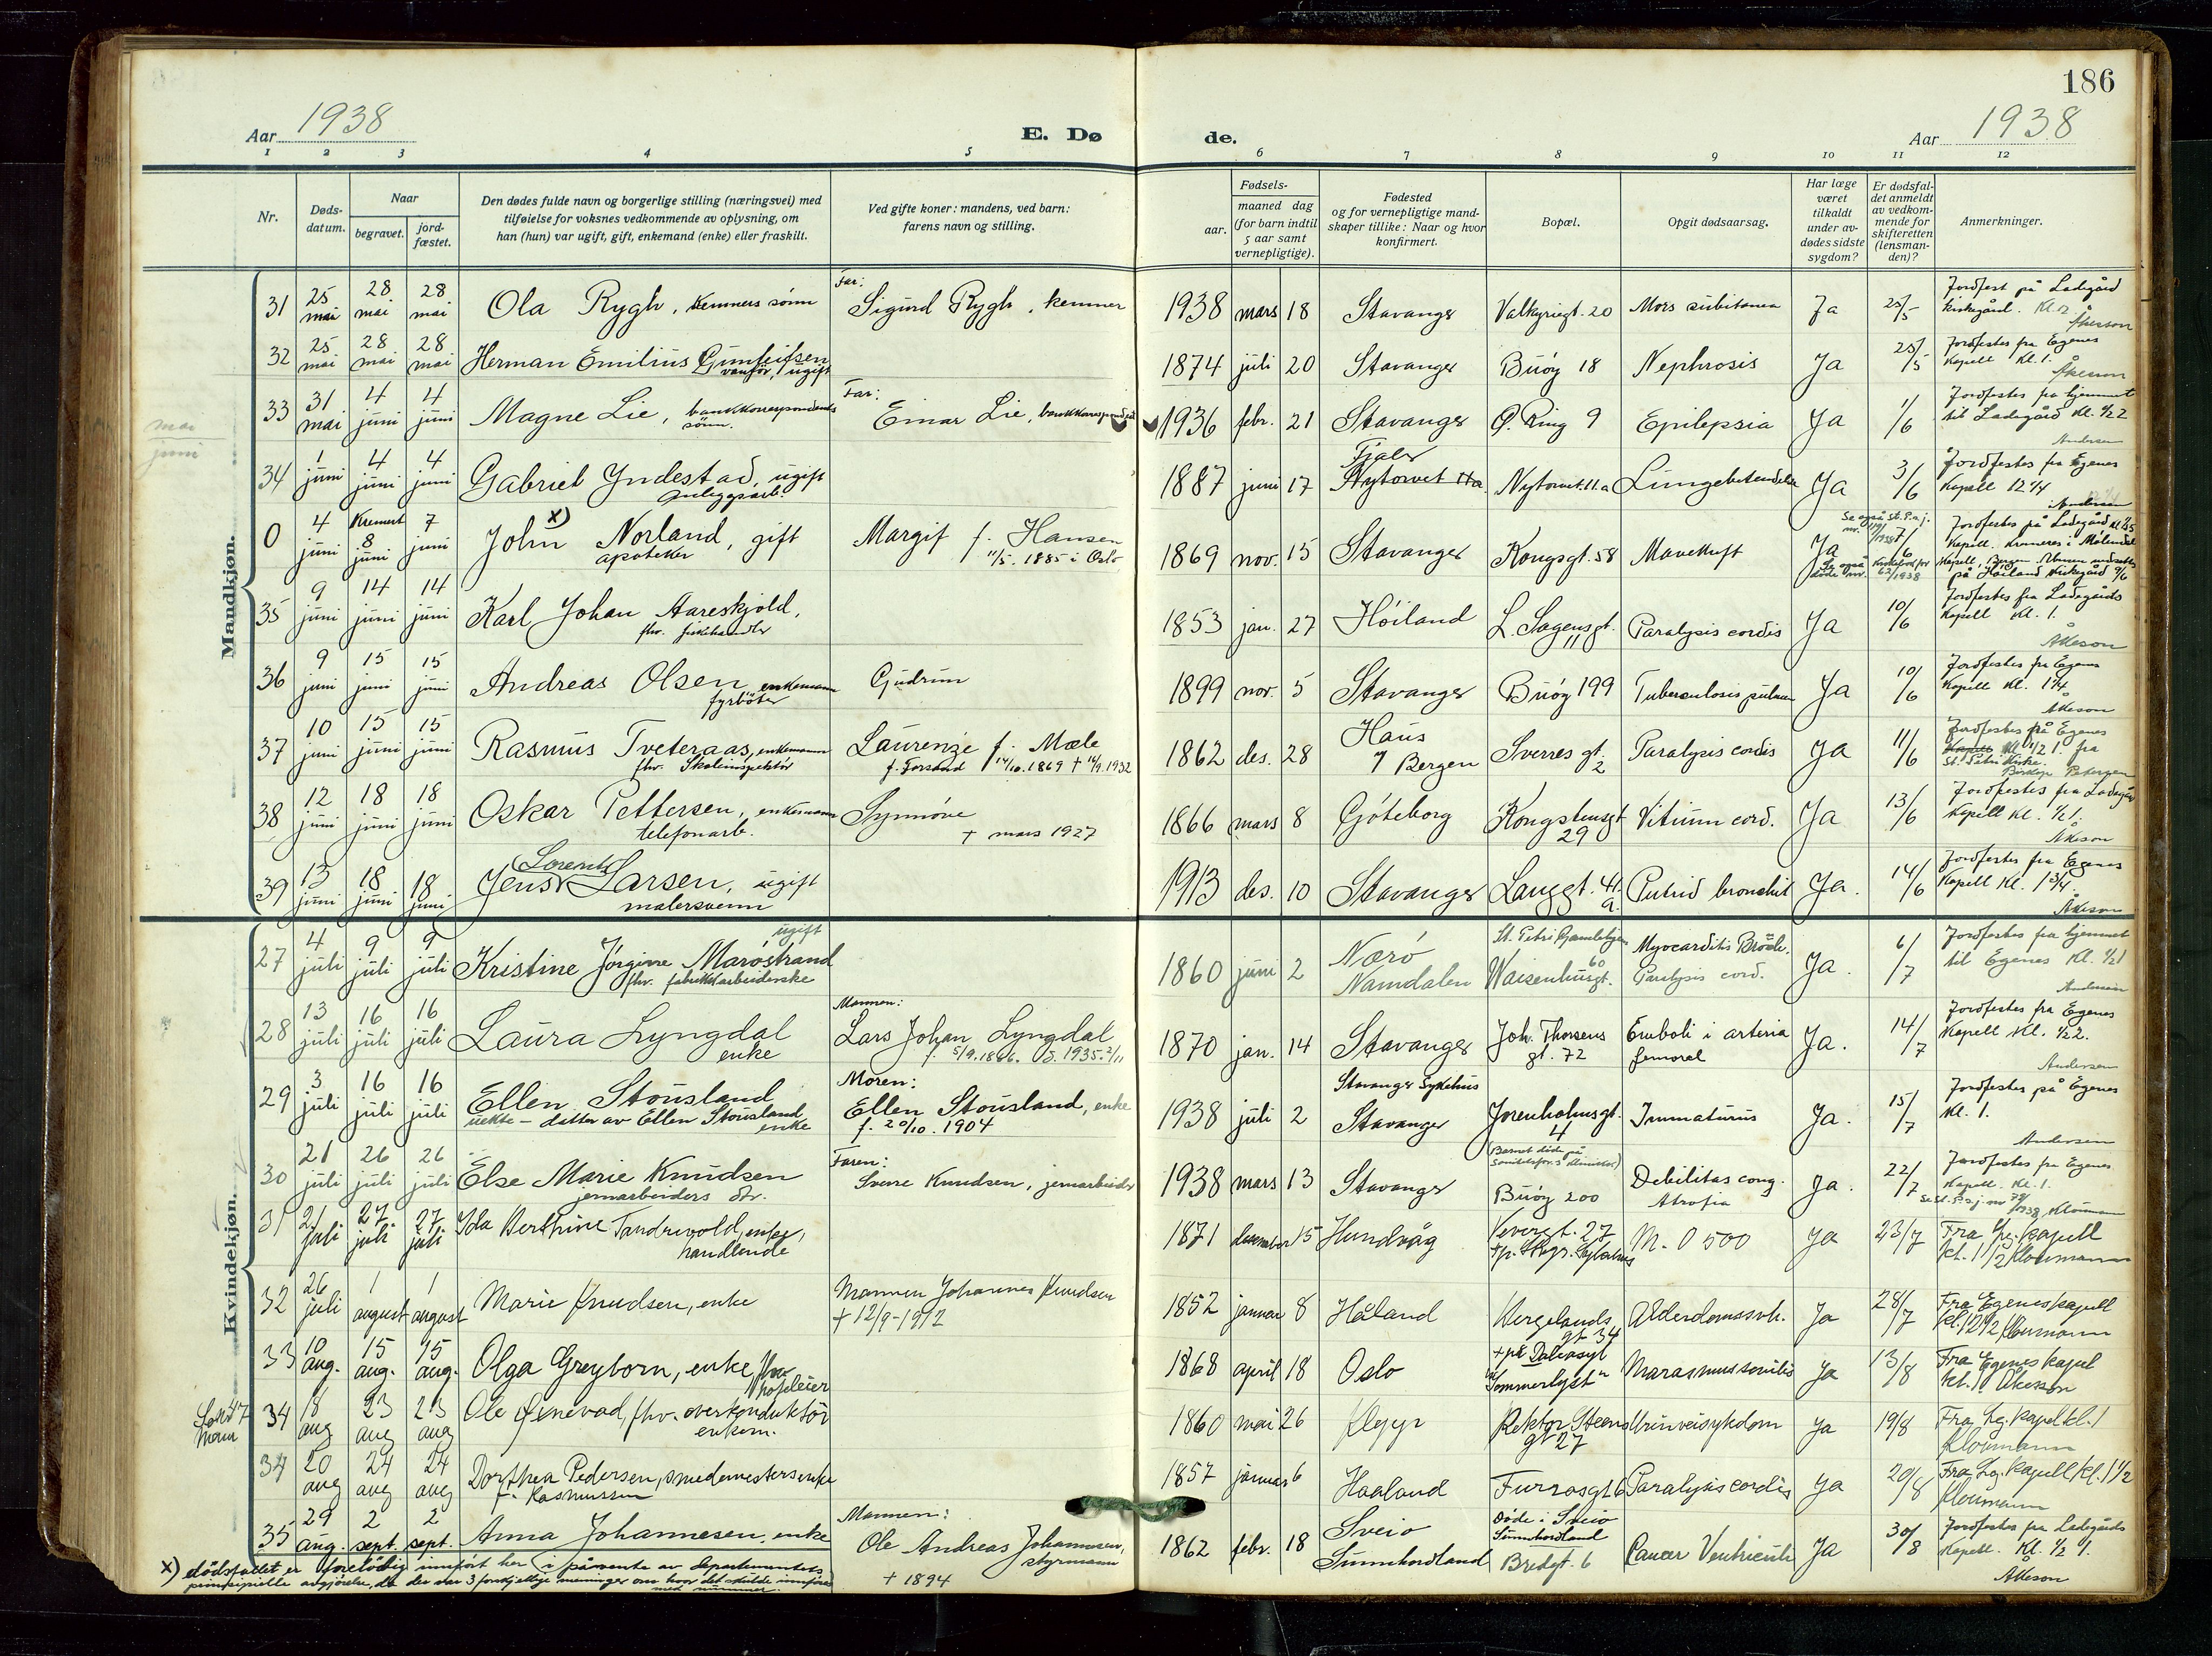 186
Aar 1938
E. Døde.
Aar 1938
1 2 3 4 5 6 7 8 9 10 11 12
Nr.
Døds-
datum.
Naar
begravet.
jord-
fæstet.
Den dødes fulde navn og borgerlige stilling (næringsvei) med
tilføielse for voksnes vedkommende av oplysning, om
han (hun) var ugift, gift, enkemand (enke) eller fraskilt.
Ved gifte koner: mandens, ved barn:
farens navn og stilling.
Fødsels-
aar.
maaned dag
(for barn indtil
5 aar samt
vernepligtige).
Fødested
og for vernepligtige mand-
skaper tillike: Naar og hvor
konfirmert.
Bopæl.
Opgit dødsaarsag.
Har læge
været
tilkaldt
under av-
dødes sidste
sygdom?
Er dødsfal-
det anmeldt
av vedkom-
mende for
skifteretten
(lensman-
den)?
Anmerkninger.
Mandkjøn.
mai
juni
31 25 mai 28 mai 28 mai Ola Rygh, kemners sønn Far: Sigurd Rygh, kemner 1938 mars 18 Stavanger Valkyriegt. 20 Mors subitanea Ja 25/5 Jordfest på Ladegård kirkegård. Kl. 2 Åkeson
32 25 mai 28 mai 28 mai Herman Emilius Gunleifsen vanfør, ugift 1874 juli 20 Stavanger Buøy 18 Nephrosis Ja 25/5 Jordfestes fra Egenes Kapell Kl. 1. Åkeson
33 31 mai 4 juni 4 juni Magne Lie, bankkorrespondents sønn. Far: Einar Lie, bankkorrespondent 1936 febr. 21 Stavanger Ø. Ring 9 Epilepsia Ja 1/6 Jordfestes fra hjemmet til Ladegård Kl. 1/2 2 Andersen
34 1 juni 4 juni 4 juni Gabriel Yndestad, ugift anleggsarb. 1887 juni 17 Fjaler Nytorvet 11a Nytorvet 11a Lungebetendelse Ja 3/6 Jordfestes fra Egenes Kapell 12 1/4 Andersen
0 4 juni Kremert 8 juni 7 juni John x) Norland, gift apoteker Margit f. Hansen 11/5. 1885 i Oslo 1869 nov. 15 Stavanger Kongsgt. 58 Mavekreft Ja 7/6 Jordfestes på Ladegård Kapell. Kremeres i Møllendal Kapell, Bergen. Urnen nedsettes på Høiland kirkegård 9/6
35 9 juni 14 juni 14 juni Karl Johan Aareskjold, fhv. fiskehandler 1853 jan. 27 Høiland L. Sagensgt. 11 Paralysis cordis Ja 10/6 Jordfestes fra Ladegårds Kapell Kl. 1. Åkeson
36 9 juni 15 juni 15 juni Andreas Olsen, enkemann fyrbøter Gudrun 1899 nov. 5 Stavanger Buøy 199 Tuberculosis pulm Ja 10/6 Jordfestes fra Egenes Kapell Kl. 1 1/4 Åkeson
37 10 juni 15 juni 15 juni Rasmus Tveteraas, enkemann fhv. Skoleinspektør Laurenze f. Mæle f. Forsand 14/10. 1869 + 14/9. 1932 1862 des. 28 Haus / Bergen Sverres gt. 2 Paralysis cordis Ja 11/6 Jordfestes frå Egenes Kapell Kl. 1/2 1. fra St. Petri Kirke. Biskop Petersen
38 12 juni 18 juni 18 juni Oskar Pettersen, enkemann telefonarb. Synnøve + mars 1927 1866 mars 8 Göteborg Kongstensgt 29 Vitium cord. Ja 13/6 Jordfestes fra Ladegård Kapell Kl. 1/2 1. Åkeson
39 13 juni 18 juni 18 juni Jens Lorentz Larsen, ugift malersvenn 1913 des. 10 Stavanger Langgt. 41 a. Putrid bronchit Ja. 14/6 Jordfestes fra Egenes Kapell Kl. 1 3/4. Åkeson
Kvindekjøn.
27 4 juli 9 juli 9 juli Kristine Jørgine Marøstrand ugift fhv. fabrikkarbeiderske 1860 juni 2 Nærø Namdalen St. Petri Gamlehjem Waisenhusgt. 60 Myocarditis Paralysis cord. Ja. 6/7 Jordfestes fra hjemmet til Egenes Kl. 1/2 1 Andersen
28 13 juli 16 juli 16 juli Laura Lyngdal enke Mannen: Lars Johan Lyngdal f. 5/9. 1866. d. 1935. 2/11 1870 jan. 14 Stavanger Joh. Thorsens gt. 72 Emboli i arteria femoral Ja. 14/7 Jordfestes fra Egenes Kapell Kl. 1/2 2. Andersen
29 3 juli 16 juli 16 juli Ellen Stousland uekte - datter av Ellen Stousland enke Moren: Ellen Stousland, enke f. 20/10. 1904 1938 juli 2 Stavanger Sykehus Stavanger Jorenholmsgt. 4 Immaturus Ja. 15/7 Jordfestes på Egenes Kl. 1. Andersen
30 21 juli 26 juli 26 juli Else Marie Knudsen jernarbeiders dtr. Faren: Sverre Knudsen, jernarbeider 1938 mars 13 Stavanger Buøy 200 Debilitas cong. Atrofia Ja. 22/7 Jordfestes fra Egenes Kapell. Kl. 1.
31 21 juli 27 juli 27 juli Ida Berthine Tandrevold, enke, handlende 1871 desember 15 Hundvåg Vevergt. 27 M. O 500 Ja 23/7 Fra Eg. kapell kl. 1 1/2 Kloumann
32 26 juli 1 august 1 august Marie Knudsen, enke Mannen Johannes Knudsen + 12/9-1912 1852 januar 8 Håland Vergelands gt 34 Alderdomssvk. Ja 28/7 Fra Egenes kapell kl. 12 1/2 Kloumann
33 10 aug. 15 aug. 15 aug. Olga Greyborn, enke, fhv. hoteleier 1868 april 18 Oslo + på Dalevsyt "Sommerlyst" Marasmus senilis Ja 13/8 Fra Egenes kapel kl. 1 Åkesson
34 18 aug 23 aug 23 aug Ole Ønevad, fhv. overkonduktør enkem. 1860 mai 26 Klepp Rektor Steens gt 27 Urinveisykdom Ja 19/8 Fra Lg. kapel kl. 1 Kloumann
34 20 aug 24 aug 24 aug Dorthea Pedersen, smedemestersenke f. Rasmussen 1857 januar 6 Haaland Furrasgt 6 Paralysis cordis Ja 20/8 Fra Lg. kapell kl. 1 1/2 Kloumann
35 29 aug. 2 sept. 2 sept. Anna Johannesen, enke Mannen: Ole Andreas Johannesen, styrmann + 1894 1862 febr. 18 Sveio Sunnhordland Døde i Sveio Sunnhordland Bredgt. 6 Cancer Ventriculi Ja 30/8 Jordfestes fra Ladegårds Kapell. Kl. 1/2 1. Åkeson
x) dødsfallet er foreløbig innført her i påvente av Departementets
prinsipielle avgjørelse, da der var 3 forskjellige meninger om hvor det skulde innføres
med nummer.